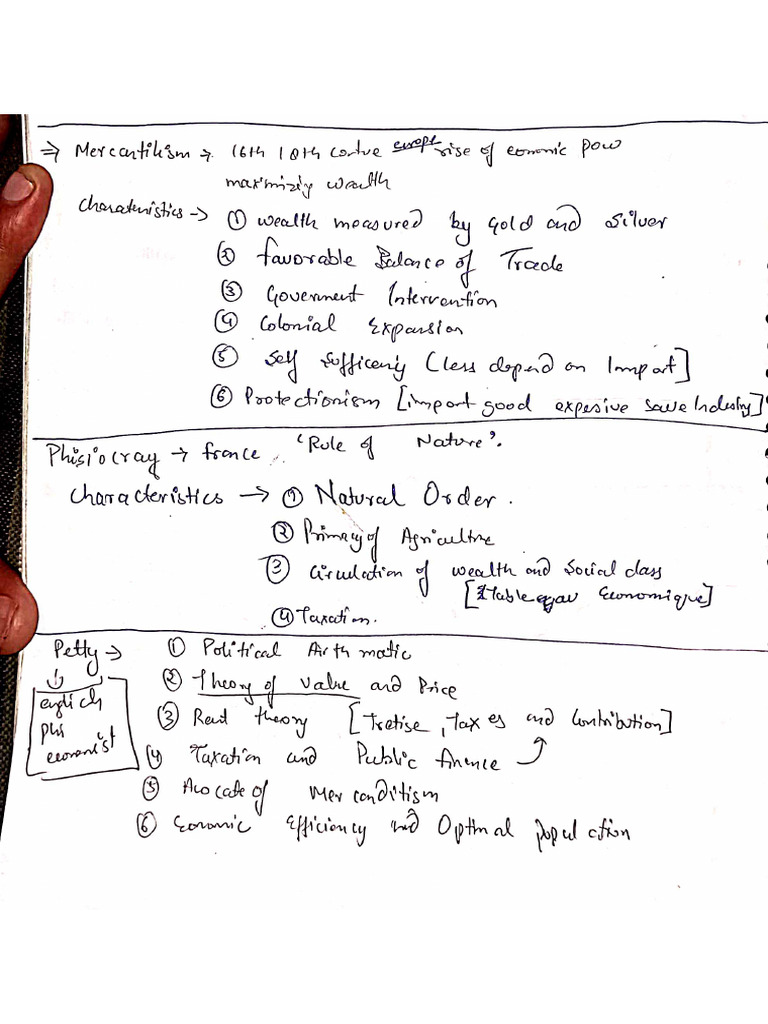 ⇒ Mercantilism → 16th 18th centure europe rise of economic pow
maximiziy wealth
Charateristics → ① wealth measured by Gold and Silver
② favorable Balance of Trade
③ Goverment Intervention
④ Colonial Expansion
⑤ Self Sufficeniy (less depend on Import]
⑥ Protectionism [import good expesive save Industry]
Phisiocray → france 'Rule of Nature'.
Characteristics → ① Natural Order.
② Primacy of Agriculture
③ Circulation of wealth and Social class
[Economique]
④ Taxation.
Petty → ① Political Airthmatic
② Theory of value and Price
english
③ Rent theory [Tretise, Taxes and Contribution]
phi
economist
④ Taxation and Public finence
⑤ Avocate of Merconditism
⑥ Economic Efficiency and Optimal population